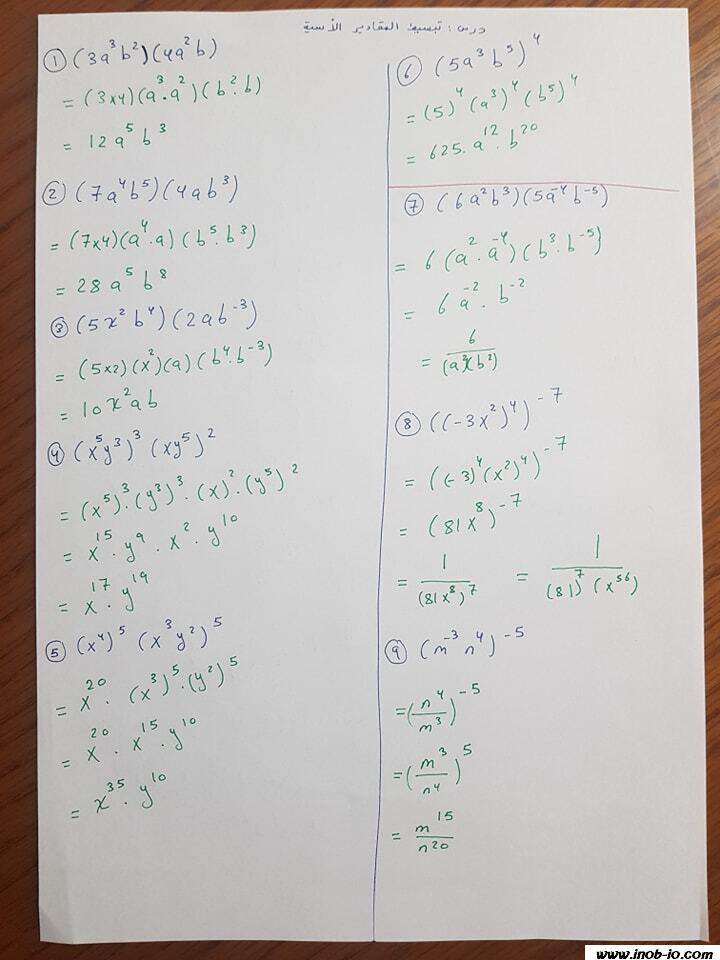 درس : تبسيط المقادير الأسية
① (3a³b²)(4a²b)
= (3×4)(a³·a²)(b²·b)
= 12a⁵b³
② (7a⁴b⁵)(4ab³)
= (7×4)(a⁴·a)(b⁵·b³)
= 28a⁵b⁸
③ (5x²b⁴)(2ab⁻³)
= (5×2)(x²)(a)(b⁴·b⁻³)
= 10x²ab
④ (x⁵y³)³(xy⁵)²
= (x⁵)³·(y³)³·(x)²·(y⁵)²
= x¹⁵·y⁹·x²·y¹⁰
= x¹⁷·y¹⁹
⑤ (x⁴)⁵(x³y²)⁵
= x²⁰·(x³)⁵·(y²)⁵
= x²⁰·x¹⁵·y¹⁰
= x³⁵·y¹⁰
⑥ (5a³b⁵)⁴
= (5)⁴(a³)⁴(b⁵)⁴
= 625·a¹²·b²⁰
⑦ (6a²b³)(5a⁻⁴b⁻⁵)
= 6(a²·a⁻⁴)(b³·b⁻⁵)
= 6a⁻²·b⁻²
= 6/(a²)(b²)
⑧ ((-3x²)⁴)⁻⁷
= ((-3)⁴(x²)⁴)⁻⁷
= (81x⁸)⁻⁷
= 1/(81x⁸)⁷ = 1/(81)⁷(x⁵⁶)
⑨ (m⁻³n⁴)⁻⁵
= (n⁴/m³)⁻⁵
= (m³/n⁴)⁵
= m¹⁵/n²⁰
www.inob-io.com